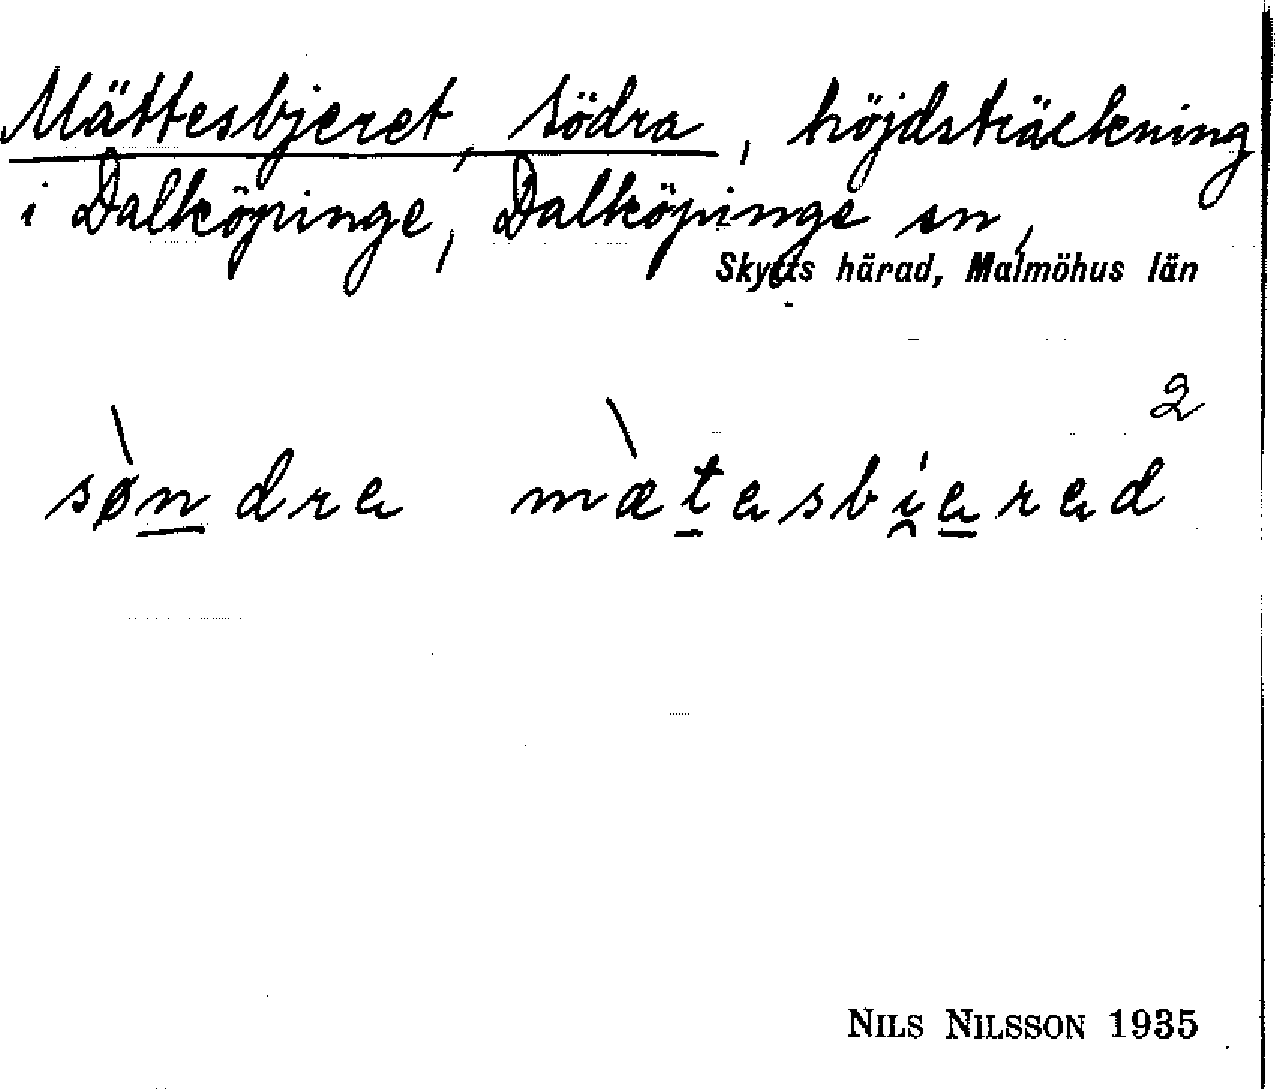 Mättesbjeret, södra, höjdsträckning
i Dalköpinge, Dalköpinge sn,
Skytts härad, Malmöhus län
2
sø̀ndra mæ̀tasbi̯arad
NILS NILSSON 1935